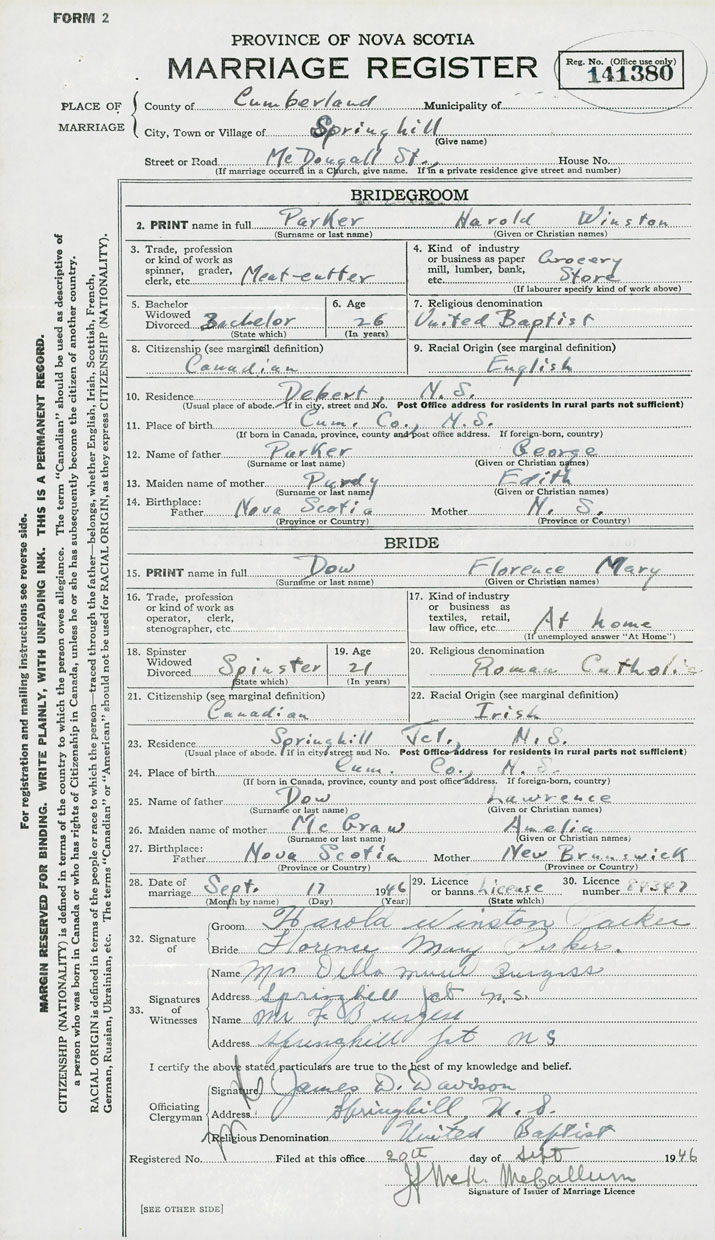 FORM 2
PROVINCE OF NOVA SCOTIA
MARRIAGE REGISTER
Reg. No. (Office use only)
141380
PLACE OF MARRIAGE
County of Cumberland Municipality of
City, Town or Village of Springhill
(Give name)
Street or Road McDougall St., House No.
(If marriage occurred in a Church, give name. If in a private residence give street and number)
BRIDEGROOM
2. PRINT name in full Parker Harold Winston
(Surname or last name) (Given or Christian names)
3. Trade, profession or kind of work as spinner, grader, clerk, etc. Meat-cutter
4. Kind of industry or business as paper mill, lumber, bank, etc. Grocery Store
(If labourer specify kind of work above)
5. Bachelor Widowed Divorced Bachelor
(State which)
6. Age 26
(In years)
7. Religious denomination
United Baptist
8. Citizenship (see marginal definition)
Canadian
9. Racial Origin (see marginal definition)
English
10. Residence Debert, N.S.
(Usual place of abode. If in city, street and No. Post Office address for residents in rural parts not sufficient)
11. Place of birth Cum. Co., N.S.
(If born in Canada, province, county and post office address. If foreign-born, country)
12. Name of father Parker George
(Surname or last name) (Given or Christian names)
13. Maiden name of mother Purdy Edith
(Surname or last name) (Given or Christian names)
14. Birthplace: Father Nova Scotia Mother N. S.
(Province or Country) (Province or Country)
BRIDE
15. PRINT name in full Dow Florence Mary
(Surname or last name) (Given or Christian names)
16. Trade, profession or kind of work as operator, clerk, stenographer, etc.
17. Kind of industry or business as textiles, retail, law office, etc. At home
(If unemployed answer "At Home")
18. Spinster Widowed Divorced Spinster
(State which)
19. Age 21
(In years)
20. Religious denomination
Roman Catholic
21. Citizenship (see marginal definition)
Canadian
22. Racial Origin (see marginal definition)
Irish
23. Residence Springhill Jct., N.S.
(Usual place of abode. If in city street and No. Post Office address for residents in rural parts not sufficient)
24. Place of birth Cum. Co., N. S.
(If born in Canada, province, county and post office address. If foreign-born, country)
25. Name of father Dow Lawrence
(Surname or last name) (Given or Christian names)
26. Maiden name of mother McGraw Amelia
(Surname or last name) (Given or Christian names)
27. Birthplace: Father Nova Scotia Mother New Brunswick
(Province or Country) (Province or Country)
28. Date of marriage Sept. 17 1946
(Month by name) (Day) (Year)
29. Licence or banns License
(State which)
30. Licence number
32. Signature of
Groom Harold Winston Parker
Bride Florence Mary Parker.
33. Signatures of Witnesses
Name Mrs Burgess
Address Springhill Jct n.s.
Name Mr F Burgess
Address Springhill Jct N S
I certify the above stated particulars are true to the best of my knowledge and belief.
Officiating Clergyman
Signature James D. Davison
Address Springhill, N.S.
Religious Denomination United Baptist
Registered No. Filed at this office 20th day of Sept 1946
J McK. McCallum
Signature of Issuer of Marriage Licence
[SEE OTHER SIDE]
For registration and mailing instructions see reverse side.
MARGIN RESERVED FOR BINDING. WRITE PLAINLY, WITH UNFADING INK. THIS IS A PERMANENT RECORD.
CITIZENSHIP (NATIONALITY) is defined in terms of the country to which the person owes allegiance. The term "Canadian" should be used as descriptive of
a person who was born in Canada or who has rights of Citizenship in Canada, unless he or she has subsequently become the citizen of another country.
RACIAL ORIGIN is defined in terms of the people or race to which the person—traced through the father—belongs, whether English, Irish, Scottish, French,
German, Russian, Ukrainian, etc. The terms "Canadian" or "American" should not be used for RACIAL ORIGIN, as they express CITIZENSHIP (NATIONALITY).